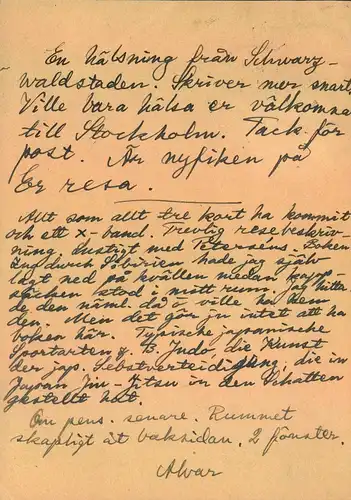 En hälsning från Schwarz-
waldstaden. Skriver mer snart.
Ville bara hälsa er välkomna
till Stockholm. Tack för
post. Är nyfiken på
Er resa.
Allt som allt tre kort ha kommit
och ett x-band. Trevlig resebeskriv-
ning. Lustigt med Petersens. Boken
Zug durch Sibirien hade jag själv
lagt ned på kvällen medan
säcken stod i mitt rum. Jag hitta-
de den näml. då o ville ha dem
den. Men det gör ju intet att ha
boken här. Typische japanische
Sportarten z. B. Judo, die Kunst
der jap. Selbstverteidigung, die in
Japan Jiu-Jitsu in den Schatten
gestellt hat.
Om pens. senare. Rummet
skapligt åt baksidan. 2 fönster.
Alvar